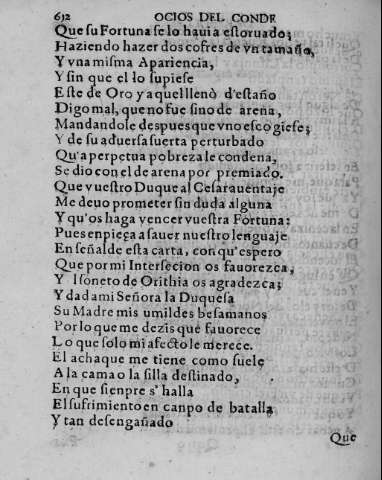 612 OCIOS DEL CONDE
Que su Fortuna se lo havia estoruado;
Haziendo hazer dos cofres de vn tamaño,
Y vna misma Apariencia,
Y sin que el lo supiese
Este de Oro y a quel llenò d'estaño
Digo mal, que no fue sino de arena,
Mandandole despues que vno escogiese;
Y de su adversa suerta perturbado
Qu'a perpetua pobreza le condena,
Se dio con el de arena por premiado.
Que vuestro Duque al Cesar auentaje
Me deuo prometer sin duda alguna
Y qu'os haga vencer vuestra Fortuna:
Pues enpieça a sauer nuestro lenguaje
En señal de esta carta, con qu'espero
Que por mi Intersecion os fauorezca,
Y l soneto de Orithia os agradezca;
Y dad a mi Señora la Duquesa
Su Madre mis umildes besamanos
Por lo que me dezis que fauorece
Lo que solo mi afecto le merece.
El achaque me tiene como suele
A la cama o la silla destinado,
En que sienpre s'halla
El sufrimiento en canpo de batalla
Y tan desengañado
Que